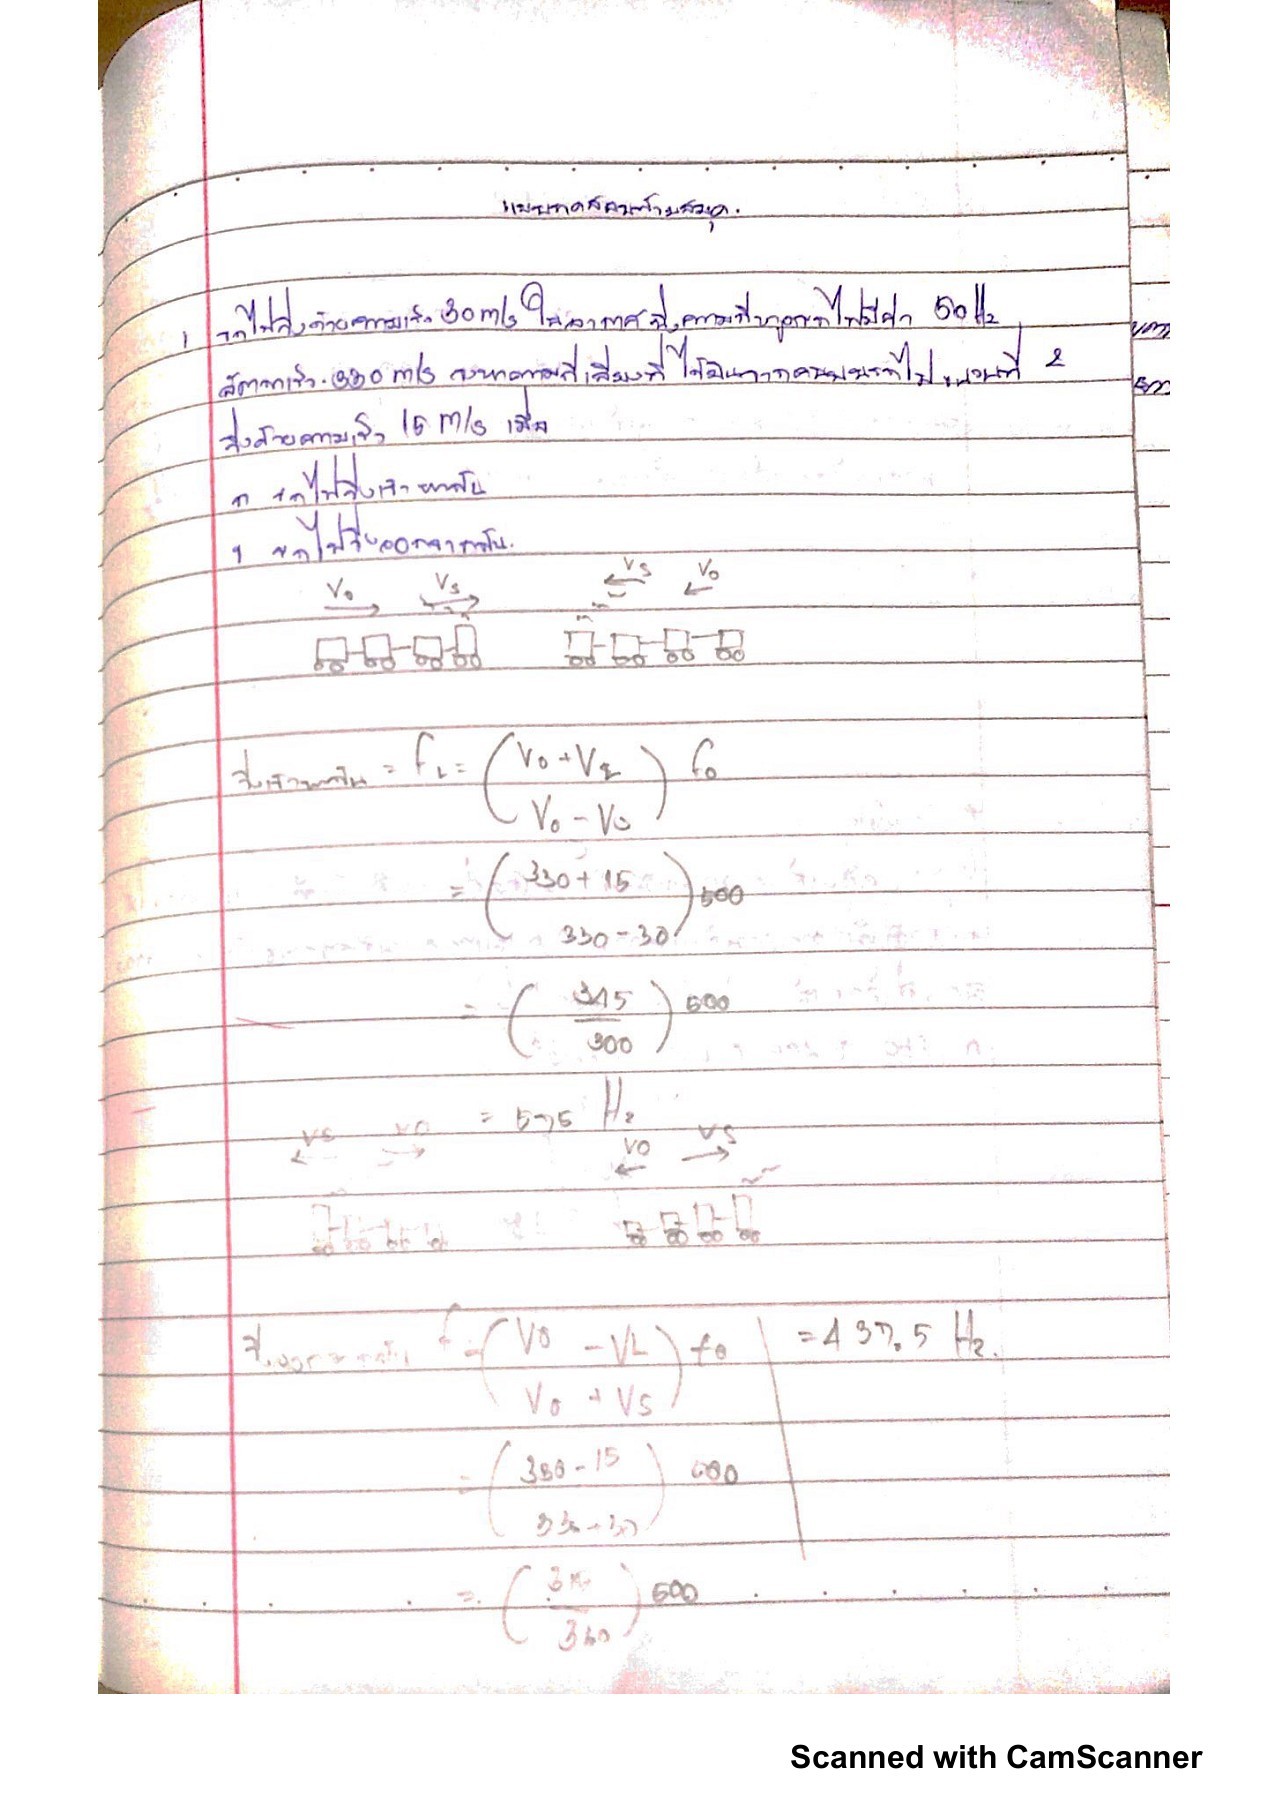 แบบทดสอบท้ายสมุด.
1 รถไฟวิ่งด้วยความเร็ว 30 m/s ในอากาศ ซึ่งความถี่ หวูดรถไฟมีค่า 50 Hz
อัตราเร็ว 330 m/s จงหาความถี่เสียงที่ได้ยินจากคนบนรถไฟขบวนที่ 2
วิ่งด้วยความเร็ว 15 m/s เมื่อ
ก รถไฟวิ่งเข้าหากัน
ข รถไฟวิ่งออกจากกัน.
V₀ Vs Vs V₀
วิ่งเข้าหากัน = fL = (V₀ + VL / V₀ - Vs) f₀
= (330 + 15 / 330 - 30) 500
= (345 / 300) 500
= 575 Hz
Vs V0 V0 Vs
วิ่งออกจากกัน f = (V0 - VL / V0 + Vs) f0 = 437.5 Hz.
= (330 - 15 / 330 + 30) 500
= (315 / 360) 500
Scanned with CamScanner